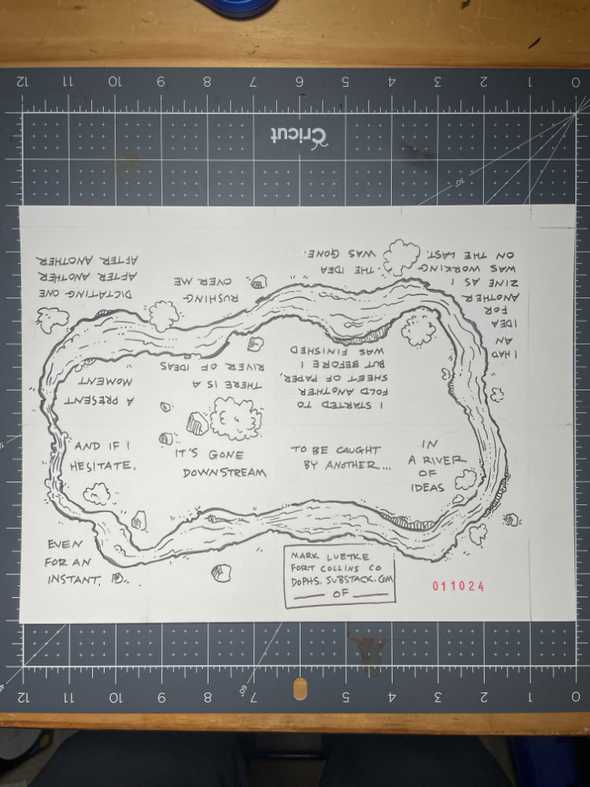 12 11 10 9 8 7 6 5 4 3 2 1 0
Cricut
I HAD
AN
IDEA
FOR
ANOTHER
ZINE AS I
WAS WORKING
ON THE LAST.
I STARTED TO
FOLD ANOTHER
SHEET OF PAPER,
BUT BEFORE I
WAS FINISHED
THE IDEA
WAS GONE.
THERE IS A
RIVER OF IDEAS
RUSHING
OVER ME
A PRESENT
MOMENT
DICTATING ONE
AFTER ANOTHER
AFTER ANOTHER
AND IF I
HESITATE,
EVEN
FOR AN
INSTANT,
IT'S GONE
DOWNSTREAM
TO BE CAUGHT
BY ANOTHER...
IN
A RIVER
OF
IDEAS
MARK LUETKE
FORT COLLINS CO
DOPHS.SUBSTACK.COM
OF
011024
12 11 10 9 8 7 6 5 4 3 2 1 0